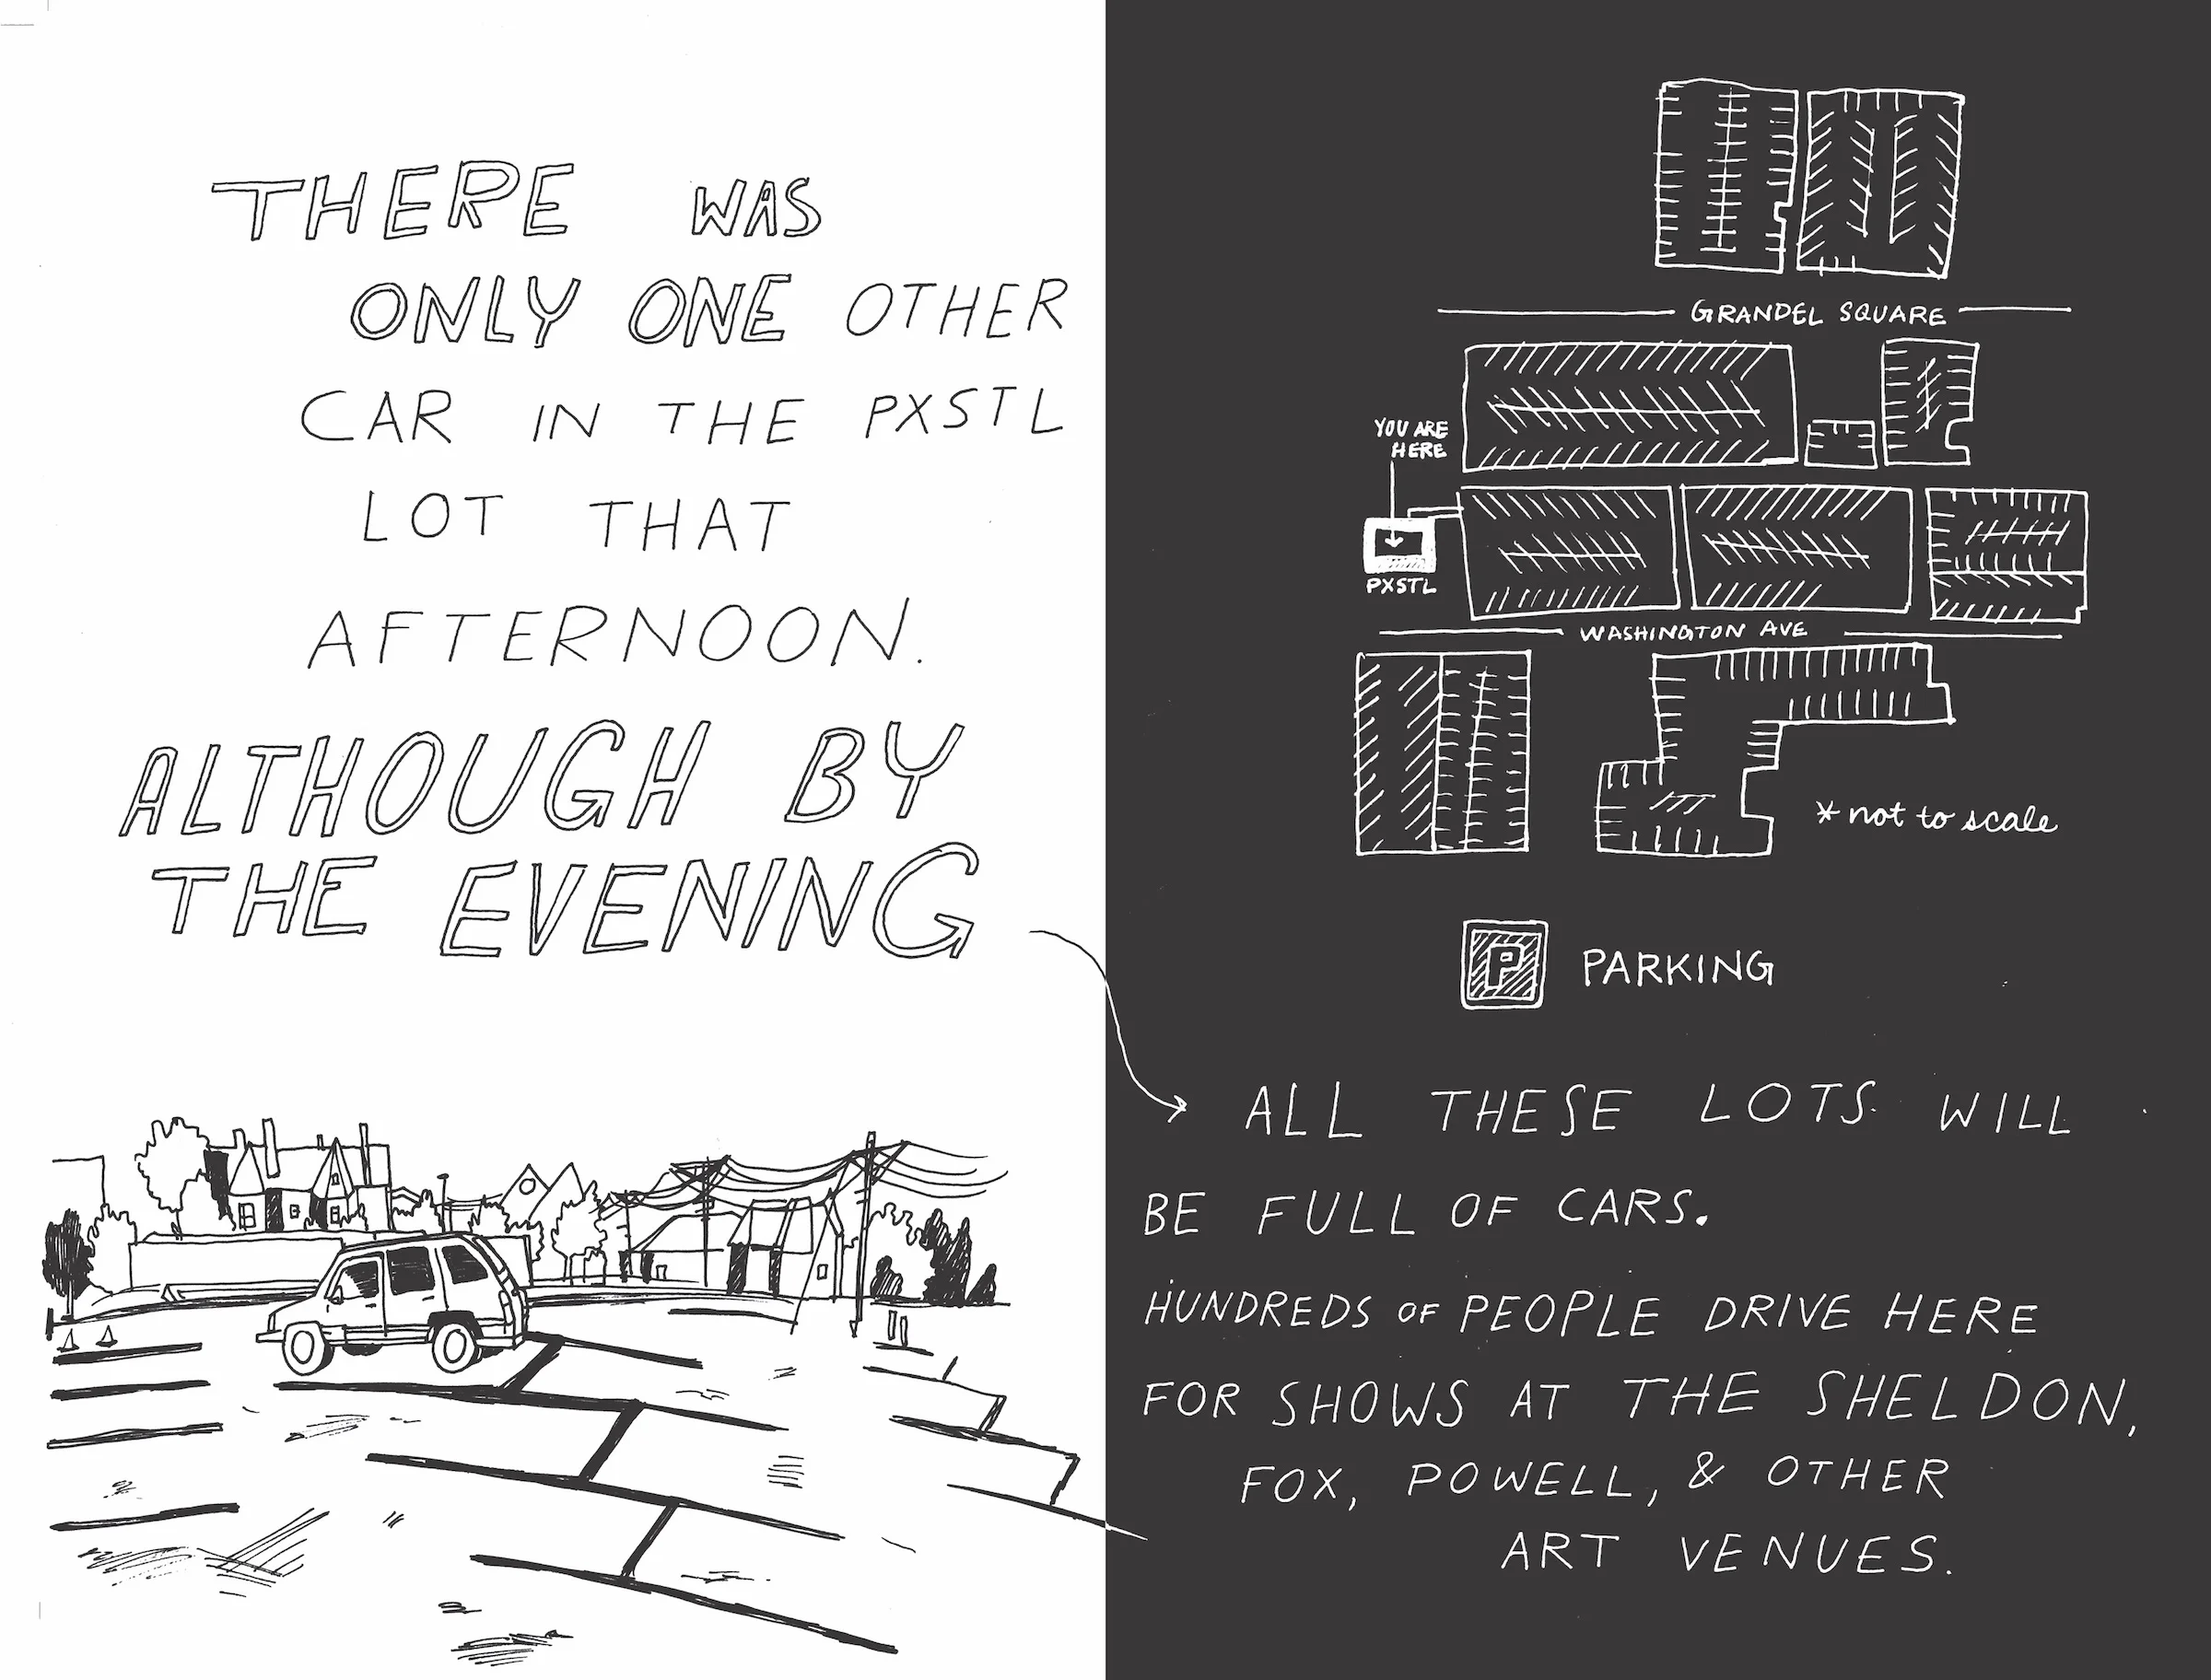 THERE WAS
ONLY ONE OTHER
CAR IN THE PXSTL
LOT THAT
AFTERNOON.
ALTHOUGH BY
THE EVENING
GRANDEL SQUARE
YOU ARE
HERE
PXSTL
WASHINGTON AVE
* not to scale
P PARKING
ALL THESE LOTS WILL
BE FULL OF CARS.
HUNDREDS OF PEOPLE DRIVE HERE
FOR SHOWS AT THE SHELDON,
FOX, POWELL, & OTHER
ART VENUES.